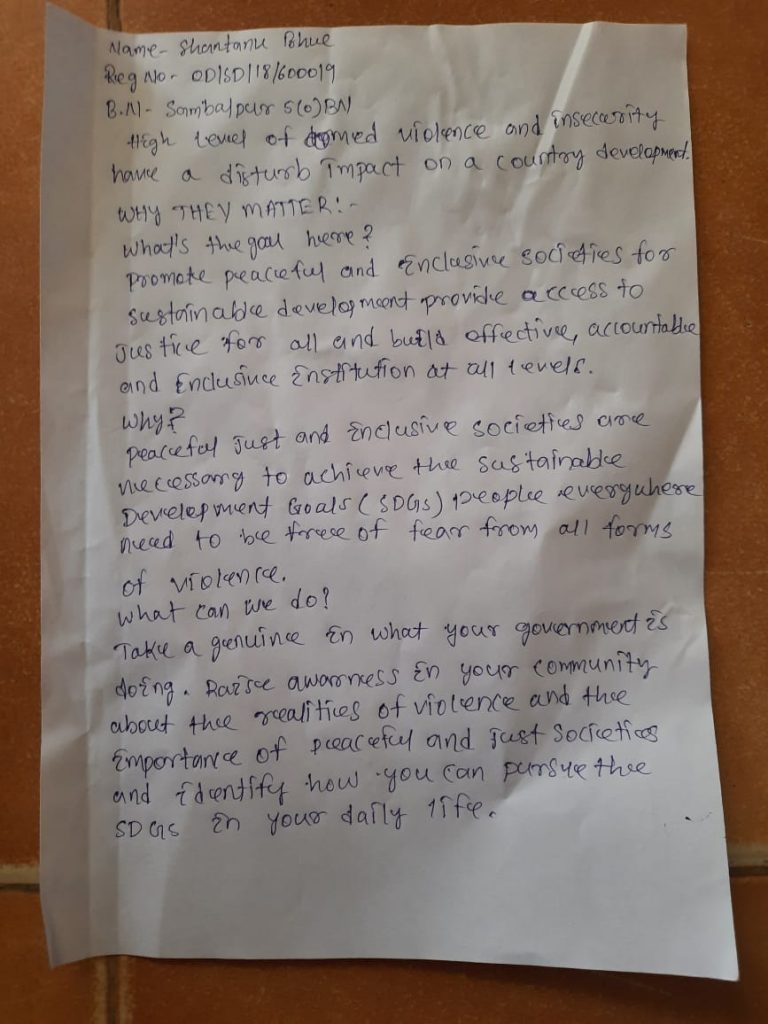 Name- Shantanu Bhue
Reg No- OD/SD/18/600019
B.N- Sambalpur 5(O)BN
High level of armed violence and insecurity
have a disturb impact on a country development.
WHY THEY MATTER!-
What's the goal here?
Promote peaceful and inclusive societies for
sustainable development provide access to
justice for all and build effective, accountable
and inclusive institution at all levels.
Why?
peaceful just and inclusive societies are
necessary to achieve the sustainable
Development Goals (SDGs) people everywhere
need to be free of fear from all forms
of violence.
What can we do?
Take a genuine in what your government is
doing. Raise awarness in your community
about the realities of violence and the
importance of peaceful and just societies
and identify how you can pursue the
SDGs in your daily life.